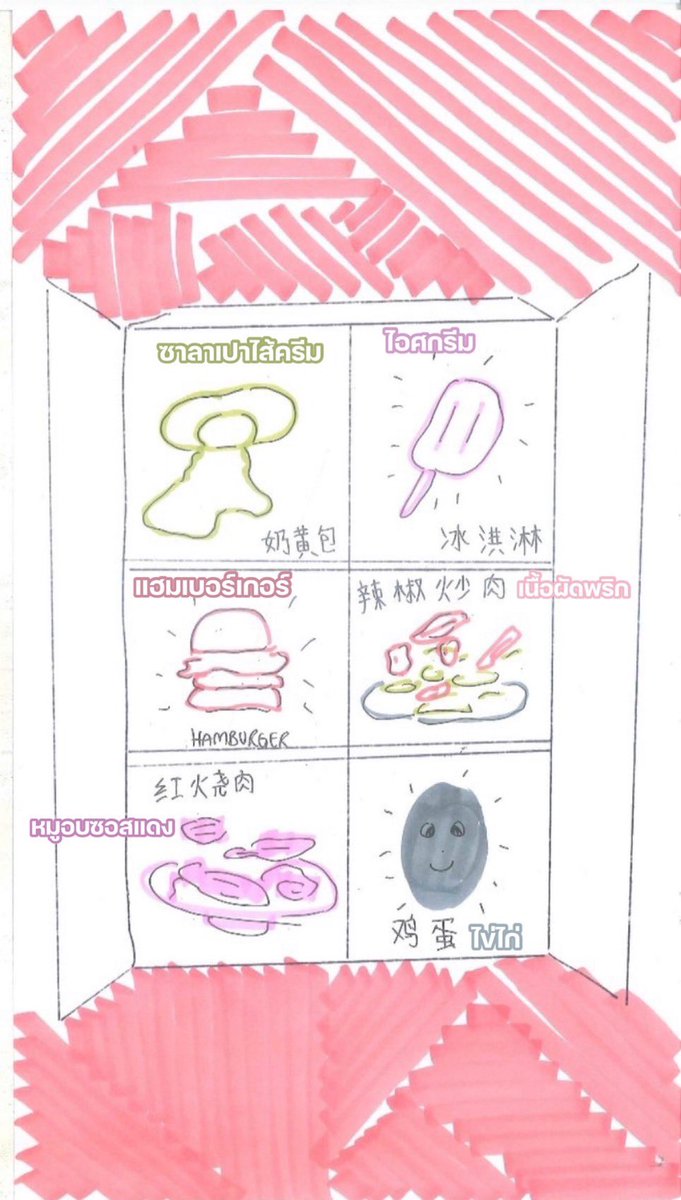 ซาลาเปาไส้ครีม
ไอศกรีม
奶黄包
冰洪淋
แฮมเบอร์เกอร์
辣椒炒肉 เนื้อผัดพริก
HAMBURGER
红火烧肉
หมูอบซอสแดง
鸡蛋 ไข่ไก่